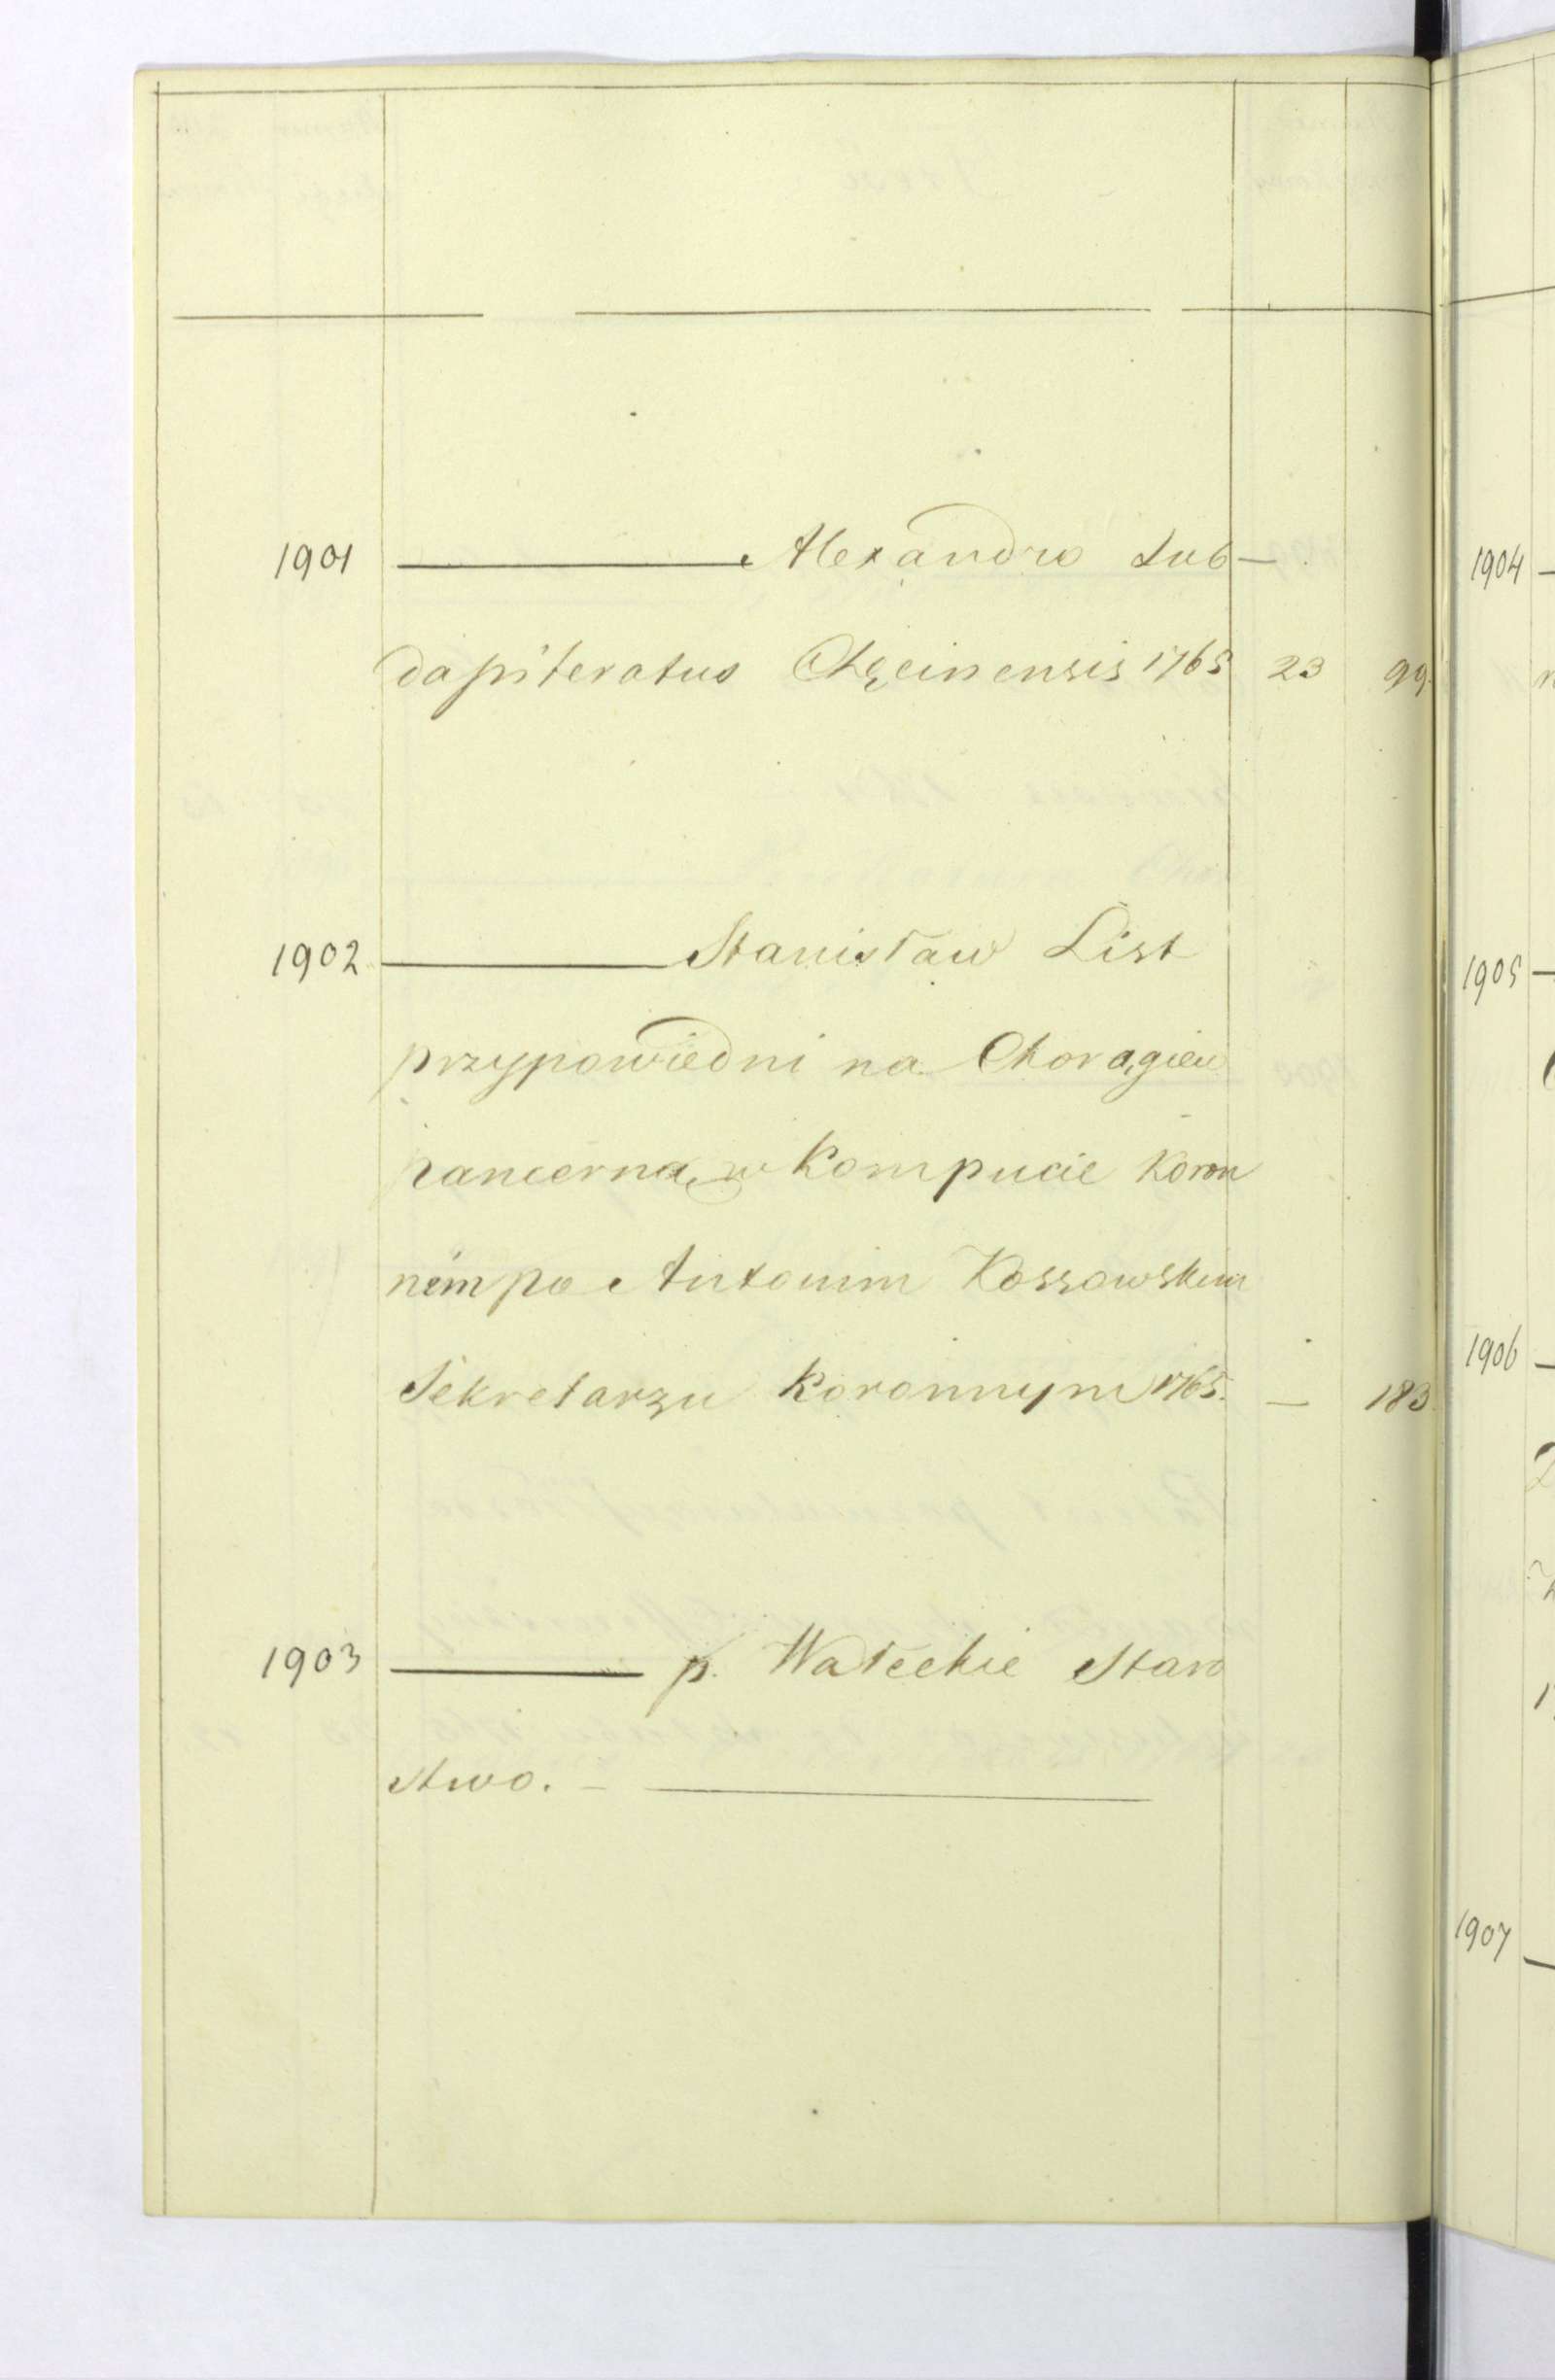 1901 ——— Alexandro Sub—
dapiteratus Chęcinensis 1765 23 99
1902 ——— Stanisław List
przypowiedni na Chorągiew
pancerną w Kompucie Koron
nem po Antonim Kossowskim
Sekretarzu Koronnym 1765. — 183
1903 ——— p. Wałeckie Staro
stwo. — ———
1904 —
1905 —
1906 —
1907 —